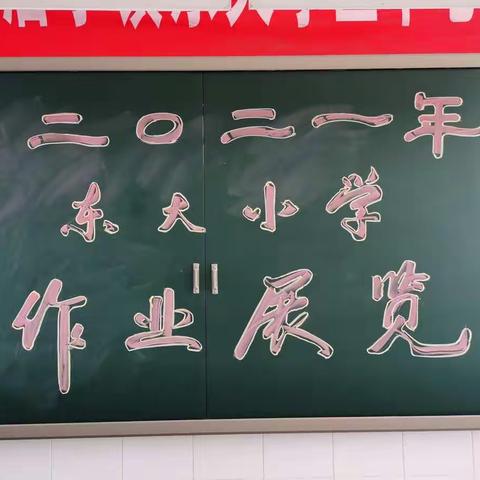 二〇二一年
东大小学
作业展览